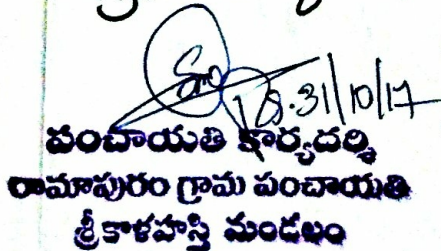 31/10/17
పంచాయతి కార్యదర్శి
రామాపురం గ్రామ పంచాయతి
శ్రీకాళహస్తి మండలం